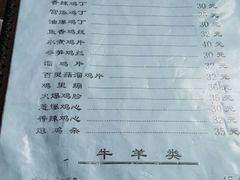 香辣鸡丁 30元
宫爆鸡丁 30元
油爆鸡丁 30元
鱼香鸡丝 32元
水煮鸡片 40元
冬笋鸡丝 30元
溜鸡片 25元
百里菇溜鸡片 32元
鸡里蹦 36元
火爆鸡胗 35元
葱爆鸡心 32元
香辣鸡心 32元
熘鸡杂 35元
牛羊类